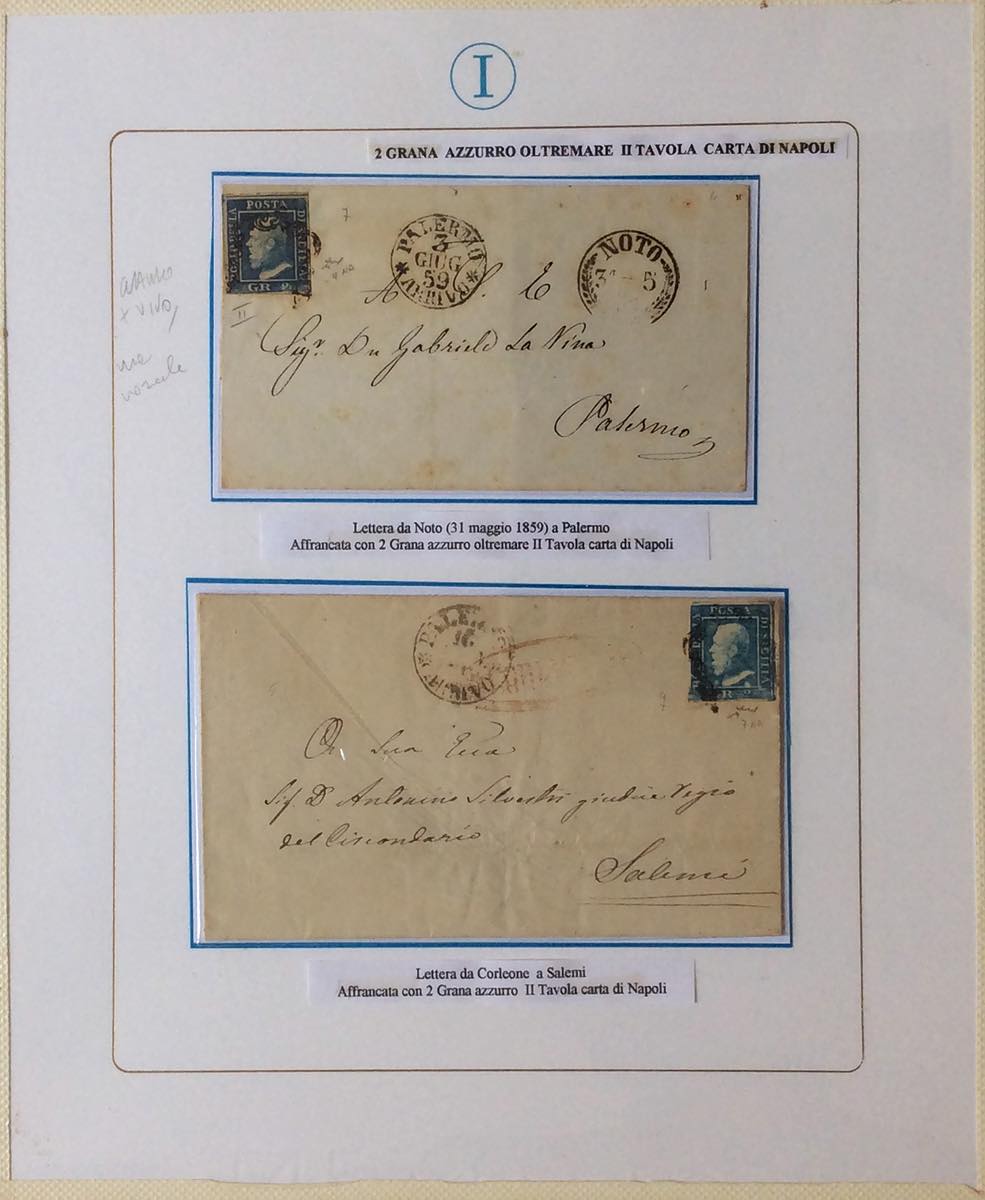 I
2 GRANA AZZURRO OLTREMARE II TAVOLA CARTA DI NAPOLI
POSTA
DI SICILIA
GR 2.
7
II
PALERMO
3
GIUG
59
ARRIVO
NOTO
31 5
A S. E
Sigr. Dn Gabriele La Vina
Palermo
Lettera da Noto (31 maggio 1859) a Palermo
Affrancata con 2 Grana azzurro oltremare II Tavola carta di Napoli
PALER
POSTA
DI SICILIA
GR 2.
A Sua Ecca
Sig. D. Antonino Silvestri giudice Regio
del Circondario
Salemi
Lettera da Corleone a Salemi
Affrancata con 2 Grana azzurro II Tavola carta di Napoli